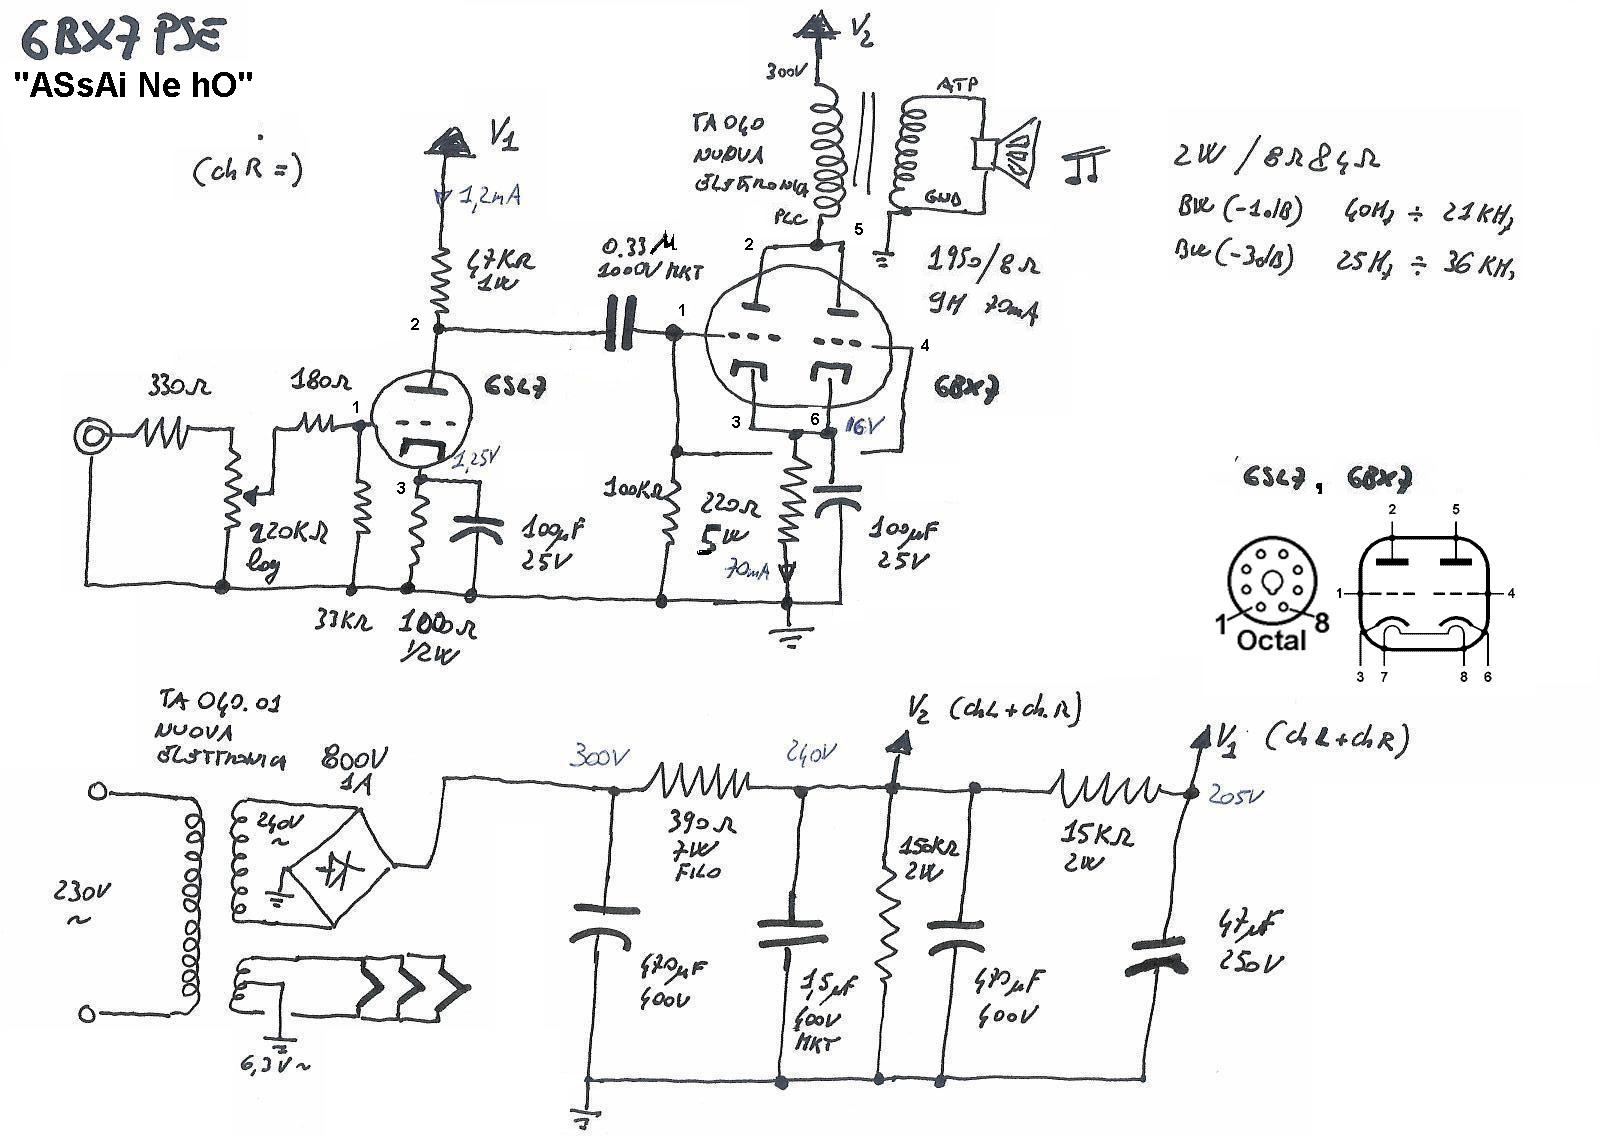 6BX7 PSE
"ASsAi Ne hO"
(ch R =)
V1
1,2mA
47KΩ
1W
2
0.33µ
1000V MKT
V2
300V
TA 040
NUOVA
ELETTRONICA
PLC
ATP
GND
2
5
1950/8Ω
9H 70mA
2W / 8Ω & 4Ω
BW (-1dB) 40Hz ÷ 21KHz
BW (-3dB) 25Hz ÷ 36KHz
1
4
6BX7
3
6
16V
330Ω
180Ω
1
6SL7
1,25V
3
220KΩ
log
33KΩ
1000Ω
1/2W
100µF
25V
100KΩ
220Ω
5W
70mA
100µF
25V
6SL7, 6BX7
2
5
1
4
3
7
8
6
1
8
Octal
TA 040.01
NUOVA
ELETTRONICA
800V
1A
240V
~
230V
~
6,3V~
300V
390Ω
7W
FILO
240V
V2 (ch L + ch. R)
V1 (ch L + ch R)
205V
150KΩ
2W
15KΩ
2W
470µF
400V
1,5µF
400V
MKT
470µF
400V
47µF
250V